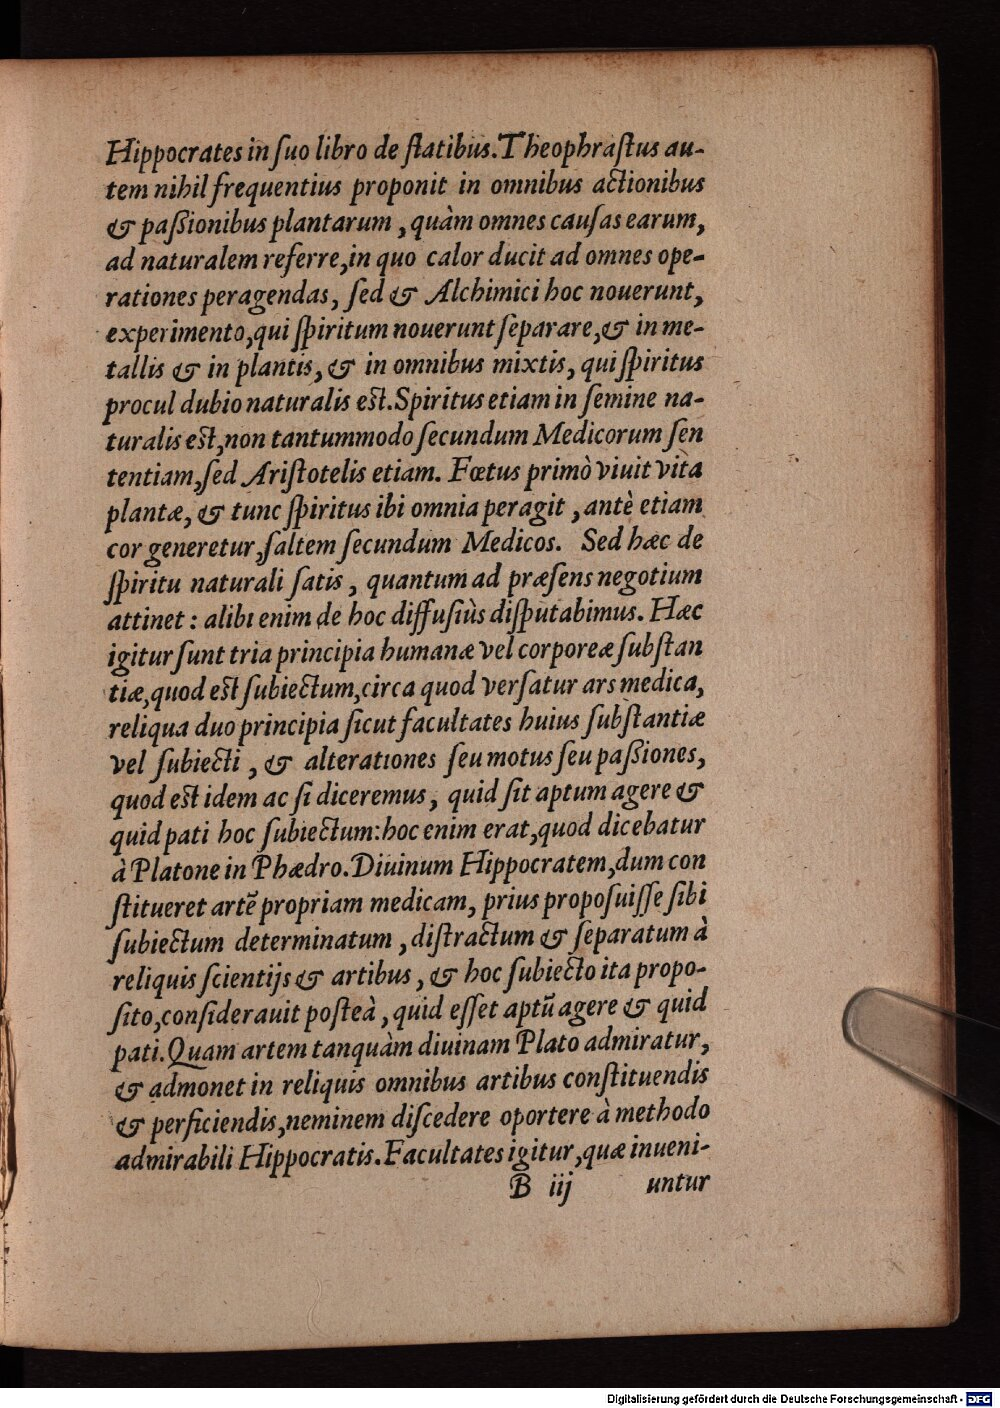 Hippocrates in ſuo libro de flatibus. Theophraſtus au-
tem nihil frequentius proponit in omnibus actionibus
& paßionibus plantarum, quàm omnes cauſas earum,
ad naturalem referre, in quo calor ducit ad omnes ope-
rationes peragendas, ſed & Alchimici hoc nouerunt,
experimento, qui ſpiritum nouerunt ſeparare, & in me-
tallis & in plantis, & in omnibus mixtis, qui ſpiritus
procul dubio naturalis est. Spiritus etiam in ſemine na-
turalis est, non tantummodo ſecundum Medicorum ſen
tentiam, ſed Ariſtotelis etiam. Fœtus primò viuit vita
plantæ, & tunc ſpiritus ibi omnia peragit, antè etiam
cor generetur, ſaltem ſecundum Medicos. Sed hæc de
ſpiritu naturali ſatis, quantum ad præſens negotium
attinet: alibi enim de hoc diffuſiùs diſputabimus. Hæc
igitur ſunt tria principia humanæ vel corporeæ ſubſtan
tiæ, quod est ſubiectum, circa quod verſatur ars medica,
reliqua duo principia ſicut facultates huius ſubſtantiæ
vel ſubiecti, & alterationes ſeu motus ſeu paßiones,
quod est idem ac ſi diceremus, quid ſit aptum agere &
quid pati hoc ſubiectum: hoc enim erat, quod dicebatur
à Platone in Phædro. Diuinum Hippocratem, dum con
ſtitueret artẽ propriam medicam, prius propoſuiſſe ſibi
ſubiectum determinatum, diſtractum & ſeparatum à
reliquis ſcientijs & artibus, & hoc ſubiecto ita propo-
ſito, conſiderauit poſteà, quid eſſet aptũ agere & quid
pati. Quam artem tanquàm diuinam Plato admiratur,
& admonet in reliquis omnibus artibus conſtituendis
& perficiendis, neminem diſcedere oportere à methodo
admirabili Hippocratis. Facultates igitur, quæ inueni-
B iij untur
Digitalisierung gefördert durch die Deutsche Forschungsgemeinschaft - DFG